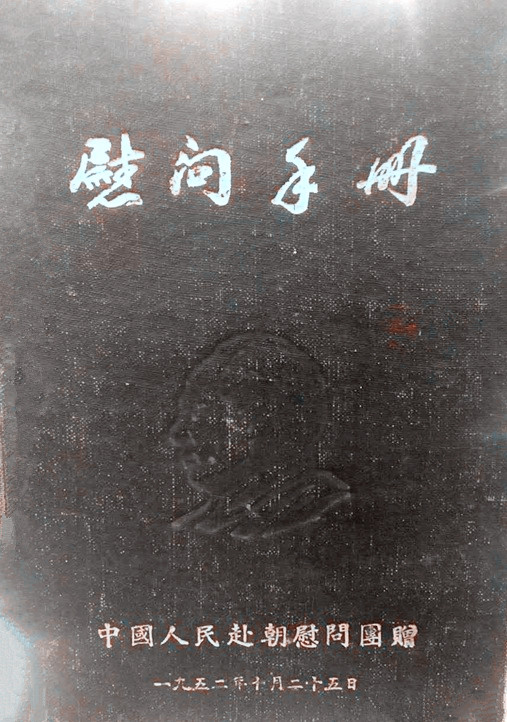 慰问手册
中國人民赴朝慰問團贈
一九五二年十月二十五日